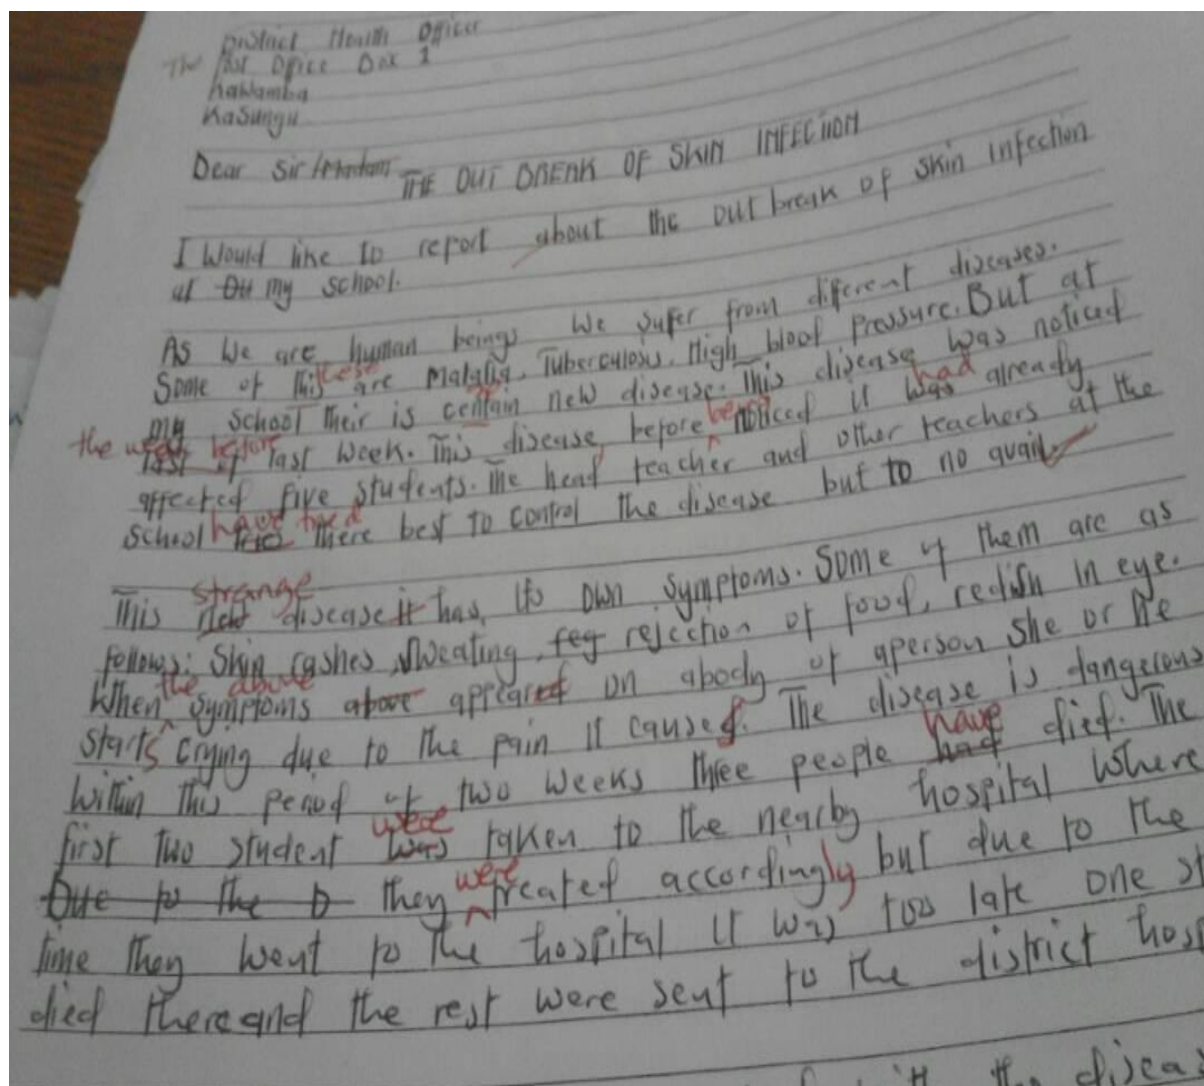 District Health Officer
The Post Office Box 1
Kawamba
Kasungu
Dear Sir/Madam
THE OUT BREAK OF SKIN INFECTION
I Would like to report about the out break of skin infection
at my school.
As We are human beings We sufer from diferent diseases.
Some of this these are Malaria, Tuberculosis. High blood Pressure. But at
my school their is certain new disease. This disease was noticed
the week before last of last week. This disease before being noticed it was had already
affected five students. The head teacher and other teachers at the
school have tried there best to control the disease but to no avail.
This strange disease it has its own symptoms. Some of them are as
follows: Skin rashes, Sweating, rejection of food, redish in eye.
When the above symptoms above appeared on abody of aperson she or he
starts crying due to the pain it caused. The disease is dangerous
Within this period of two weeks three people had have died. The
first two student was were taken to the nearby hospital Where
Due to the D they were treated accordingly but due to the
time they went to the hospital it was too late one
died there and the rest were sent to the district
the